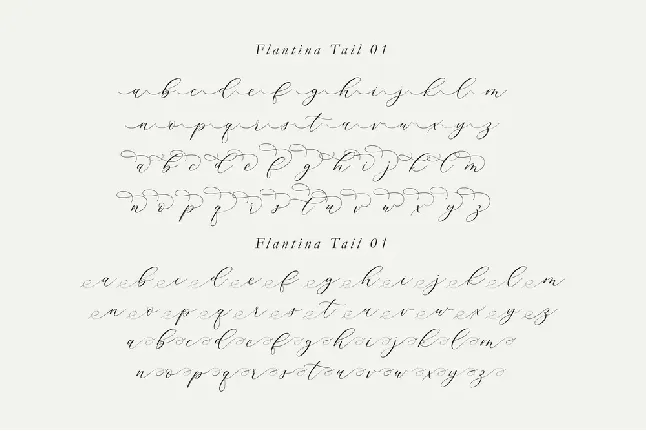 Flantina Tail 01
a b c d e f g h i j k l m
n o p q r s t u v w x y z
a b c d e f g h i j k l m
n o p q r s t u v w x y z
Flantina Tail 01
a b c d e f g h i j k l m
n o p q r s t u v w x y z
a b c d e f g h i j k l m
n o p q r s t u v w x y z